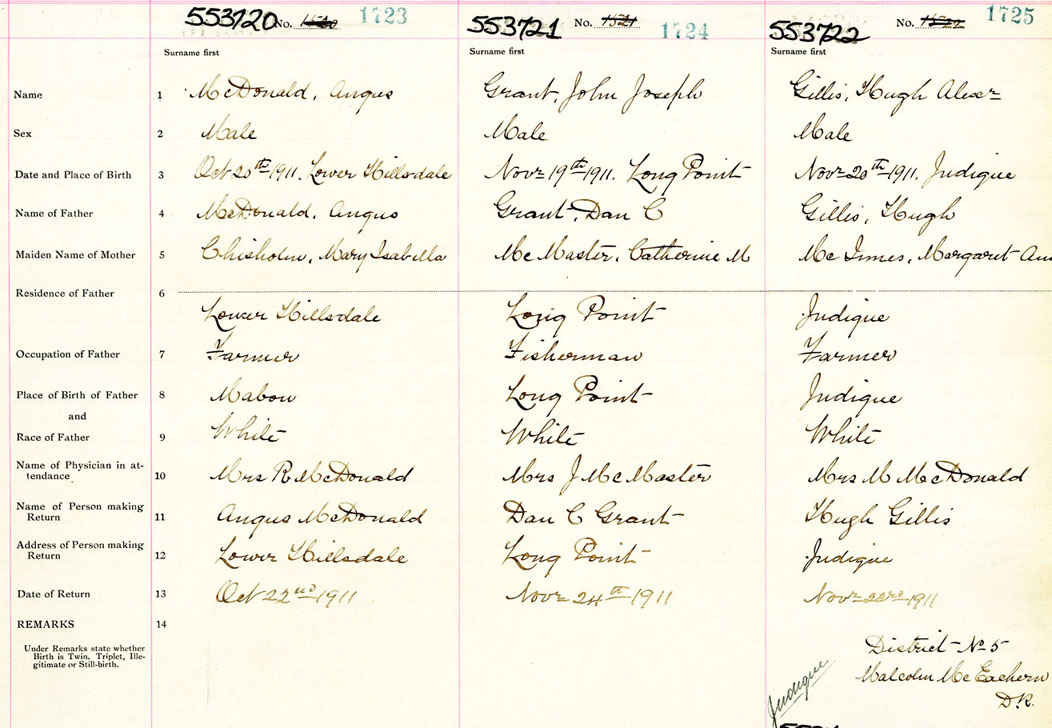 553720 No. 1520 1723
553721 No. 1521 1724
553722 No. 1522 1725
Surname first Surname first Surname first
Name 1 McDonald, Angus Grant, John Joseph Gillis, Hugh Alexr
Sex 2 Male Male Male
Date and Place of Birth 3 Oct 20th 1911. Lower Hillsdale Novr 19th 1911. Long Point Novr 20th 1911, Judique
Name of Father 4 McDonald, Angus Grant, Dan C Gillis, Hugh
Maiden Name of Mother 5 Chisholm, Mary Isabella McMaster, Catherine M McInnes, Margaret Ann
Residence of Father 6
Lower Hillsdale Long Point Judique
Occupation of Father 7 Farmer Fisherman Farmer
Place of Birth of Father 8 Mabou Long Point Judique
and
Race of Father 9 White White White
Name of Physician in at-
tendance 10 Mrs R McDonald Mrs J McMaster Mrs M McDonald
Name of Person making
Return 11 Angus McDonald Dan C Grant Hugh Gillis
Address of Person making
Return 12 Lower Hillsdale Long Point Judique
Date of Return 13 Oct 22nd 1911 Novr 24th 1911 Novr 23rd 1911
REMARKS 14
Under Remarks state whether
Birth is Twin, Triplet, Ille-
gitimate or Still-birth.
District No 5
Malcolm McEachern
D.R.
Judique